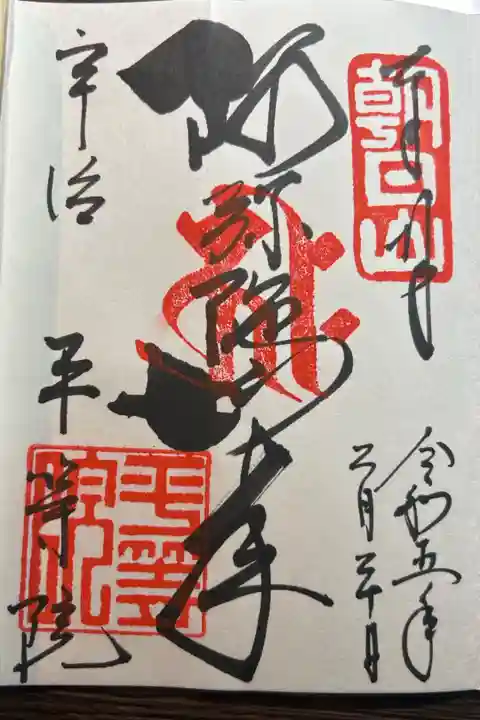 朝日山
令和五年
二月二十日
阿弥陀如来
宇治 平等院
平等院